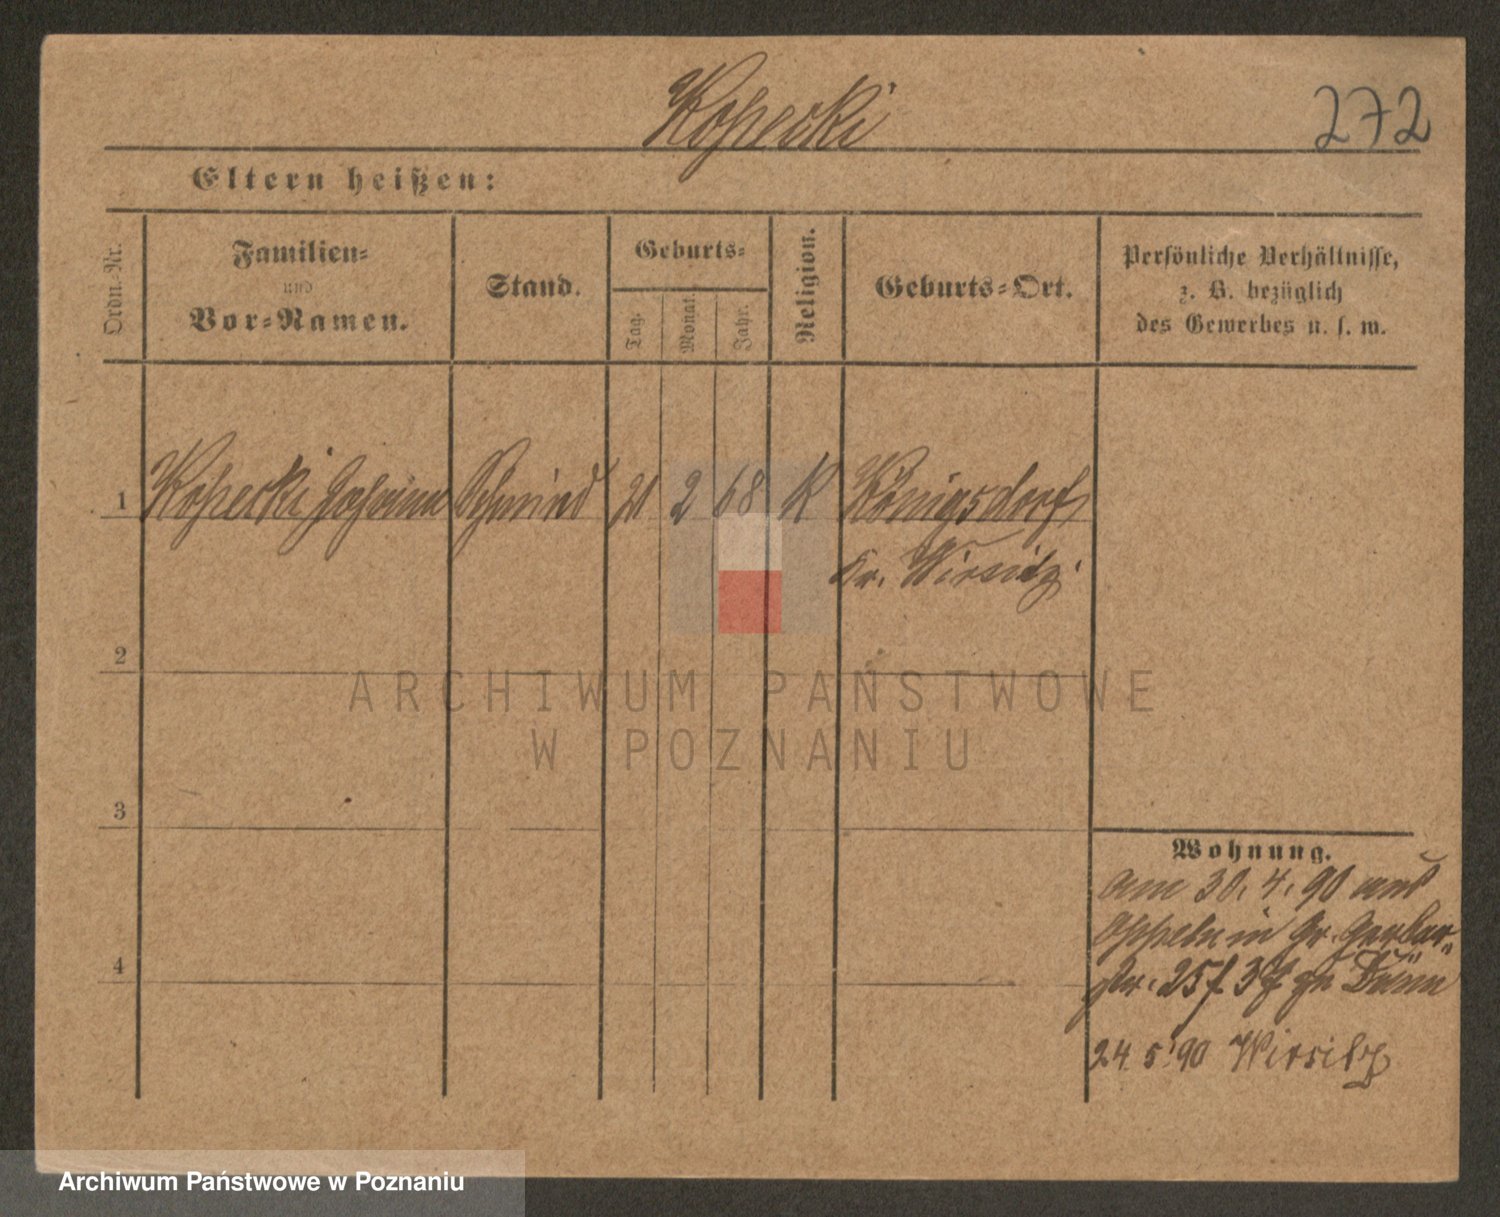 Kopecki
272
Eltern heißen:
Ordn.-Nr.
Familien-
und
Vor-Namen.
Stand.
Geburts-
Tag.
Monat.
Jahr.
Religion.
Geburts-Ort.
Persönliche Verhältnisse,
z. B. bezüglich
des Gewerbes u. s. w.
1 Kopecki Johann Schmied 21 2 68 K Königsdorf
Kr. Wirsitz
2
3
4
Wohnung.
am 30. 4. 90 aus
Oppeln in Gr. Gerber-
str. 25 f 37 zu
24. 5. 90 Wirsitz
ARCHIWUM PAŃSTWOWE
W POZNANIU
Archiwum Państwowe w Poznaniu